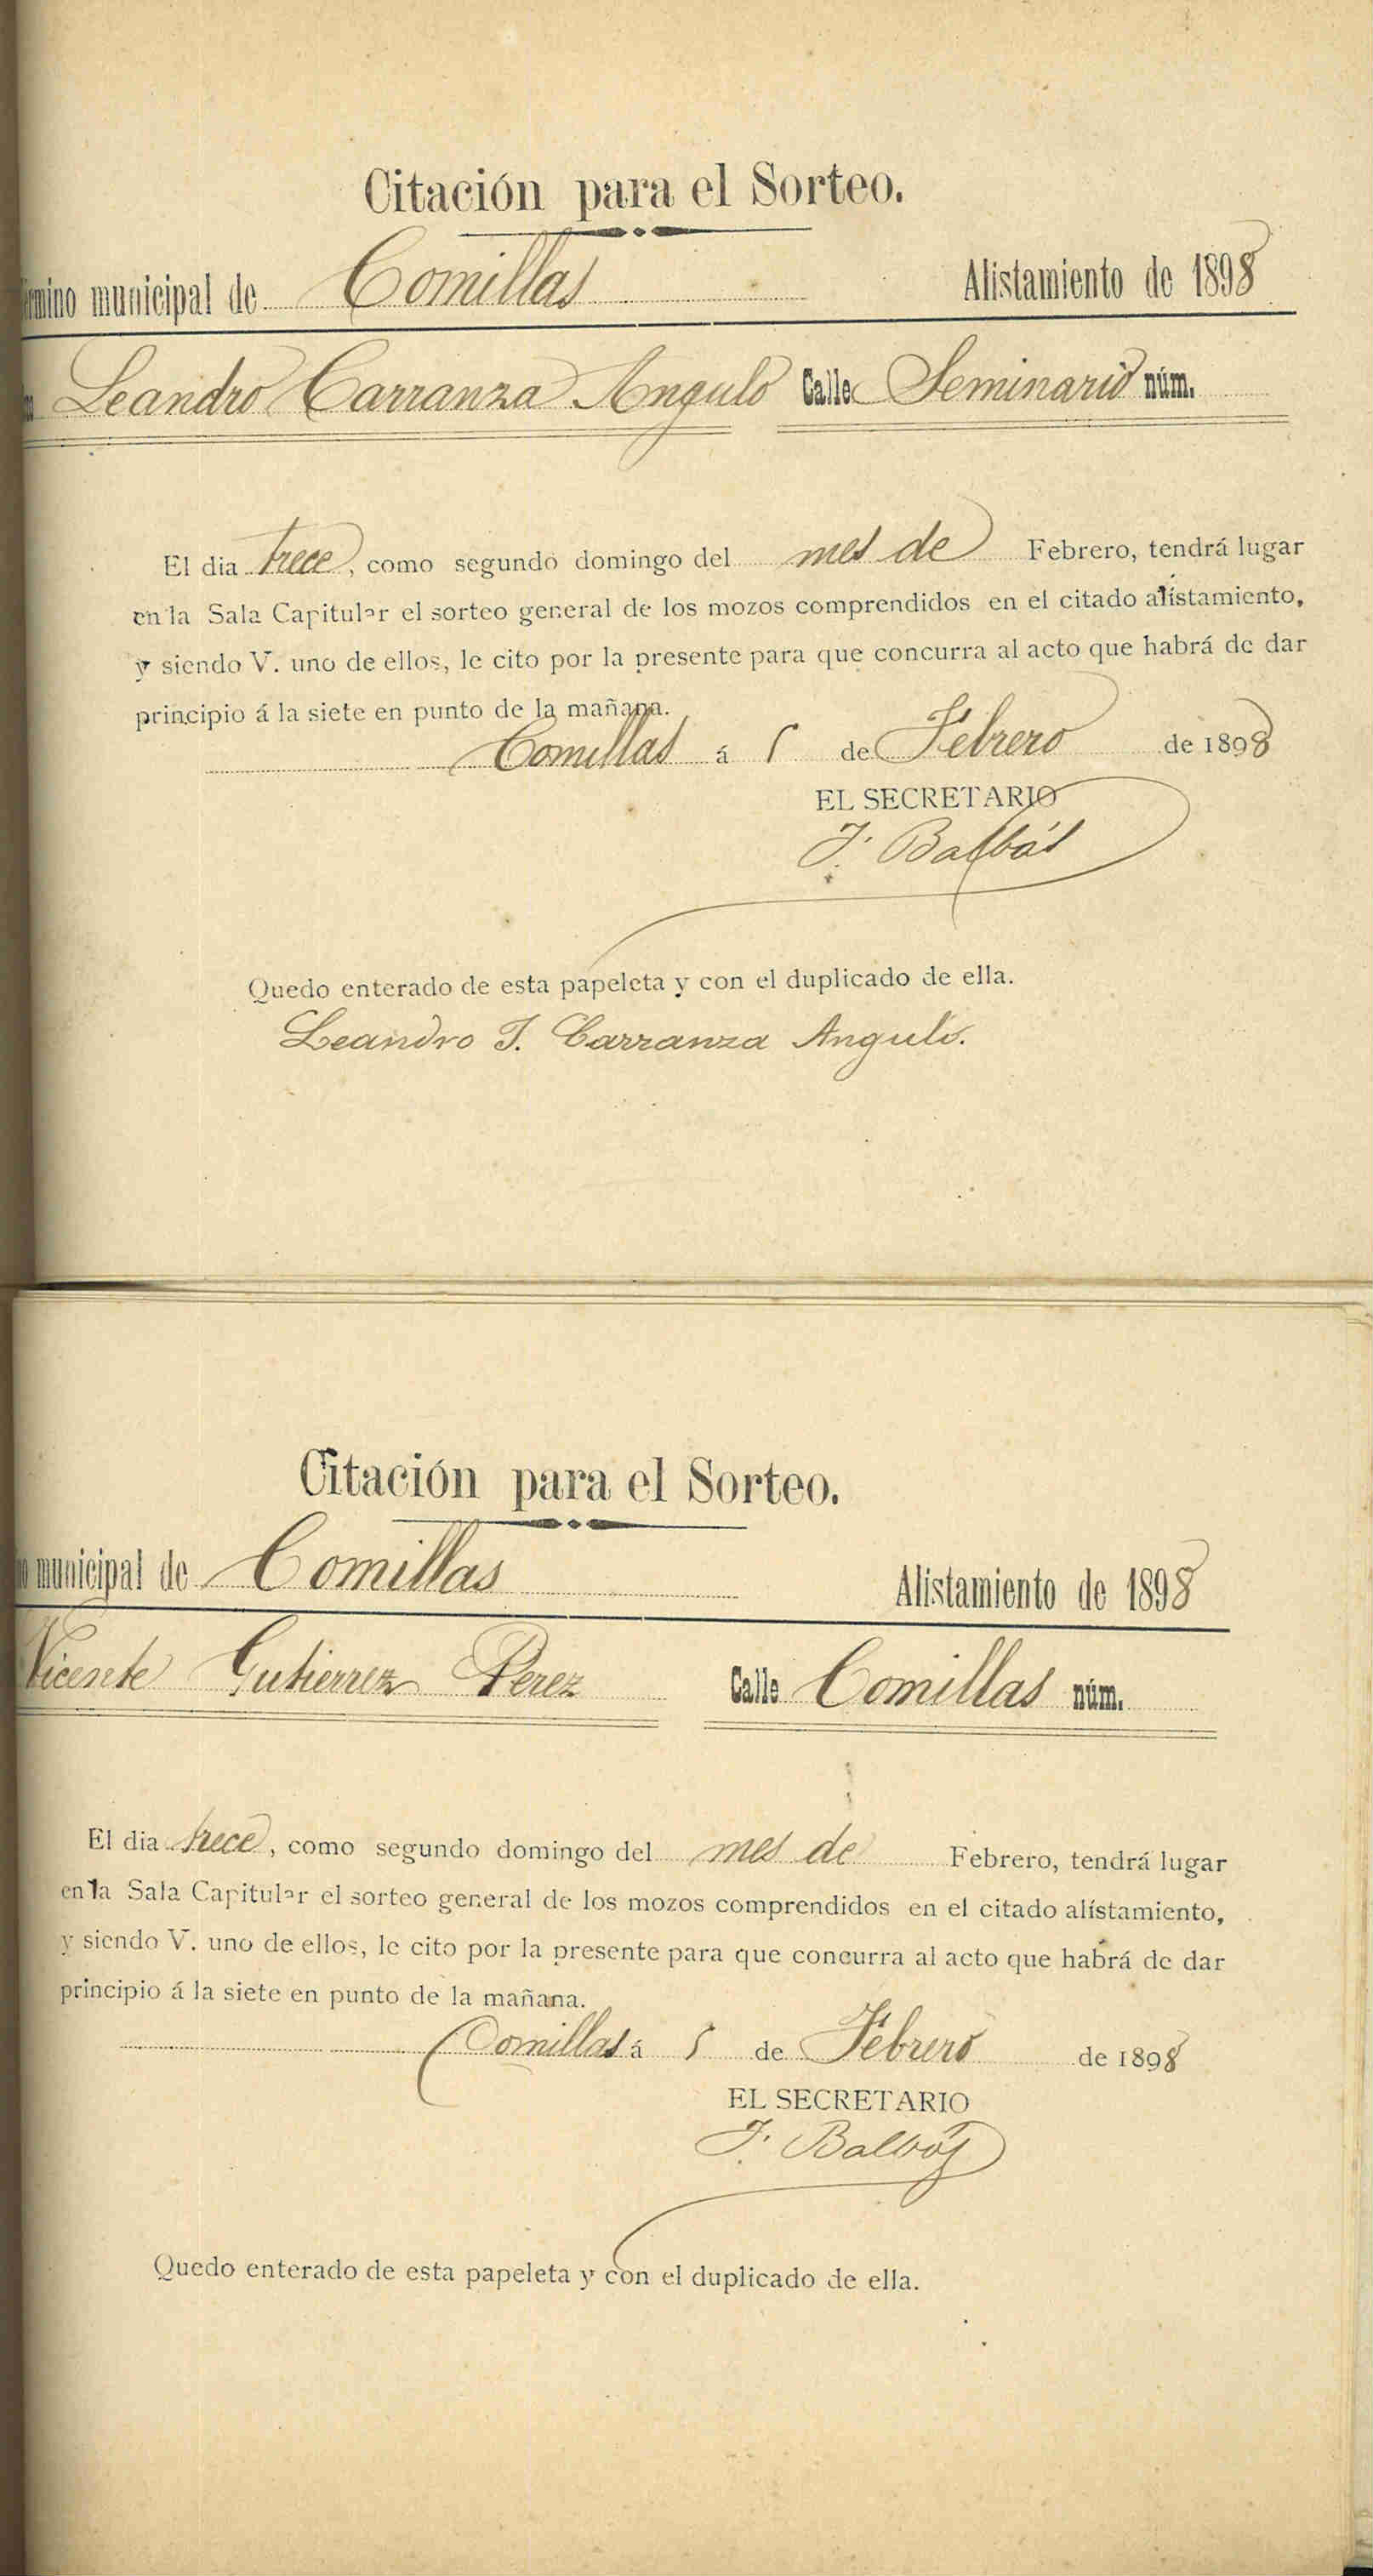 Citación para el Sorteo.
Término municipal de Comillas Alistamiento de 1898
Leandro Carranza Angulo Calle Seminario núm.
El dia trece, como segundo domingo del mes de Febrero, tendrá lugar
en la Sala Capitular el sorteo general de los mozos comprendidos en el citado alístamiento,
y siendo V. uno de ellos, le cito por la presente para que concurra al acto que habrá de dar
principio á la siete en punto de la mañana.
Comillas á 5 de Febrero de 1898
EL SECRETARIO
J. Balbás
Quedo enterado de esta papeleta y con el duplicado de ella.
Leandro J. Carranza Angulo.
Citación para el Sorteo.
municipal de Comillas Alistamiento de 1898
Vicente Gutierrez Perez Calle Comillas núm.
El dia trece, como segundo domingo del mes de Febrero, tendrá lugar
en la Sala Capitular el sorteo general de los mozos comprendidos en el citado alístamiento,
y siendo V. uno de ellos, le cito por la presente para que concurra al acto que habrá de dar
principio á la siete en punto de la mañana.
Comillas á 5 de Febrero de 1898
EL SECRETARIO
J. Balbás
Quedo enterado de esta papeleta y con el duplicado de ella.